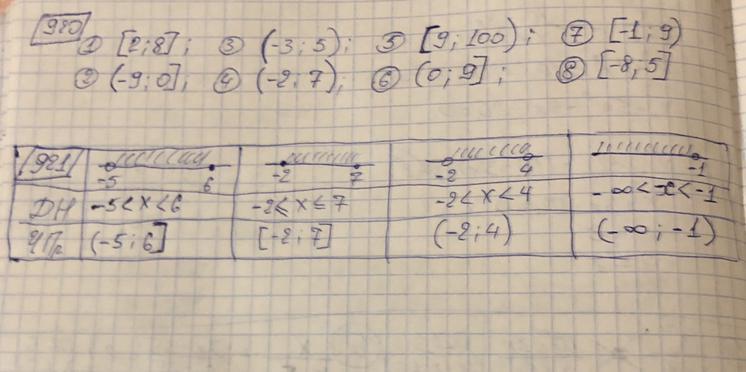 920
① [2; 8]; ③ (-3; 5); ⑤ [9; 100); ⑦ [-1; 9)
② (-9; 0]; ④ (-2; 7); ⑥ (0; 9]; ⑧ [-8; 5]
921 -5 6 -2 7 -2 4 -1
ДН -5<x<6 -2≤x≤7 -2<x<4 -∞<x<-1
ЧПр (-5; 6] [-2; 7] (-2; 4) (-∞; -1)